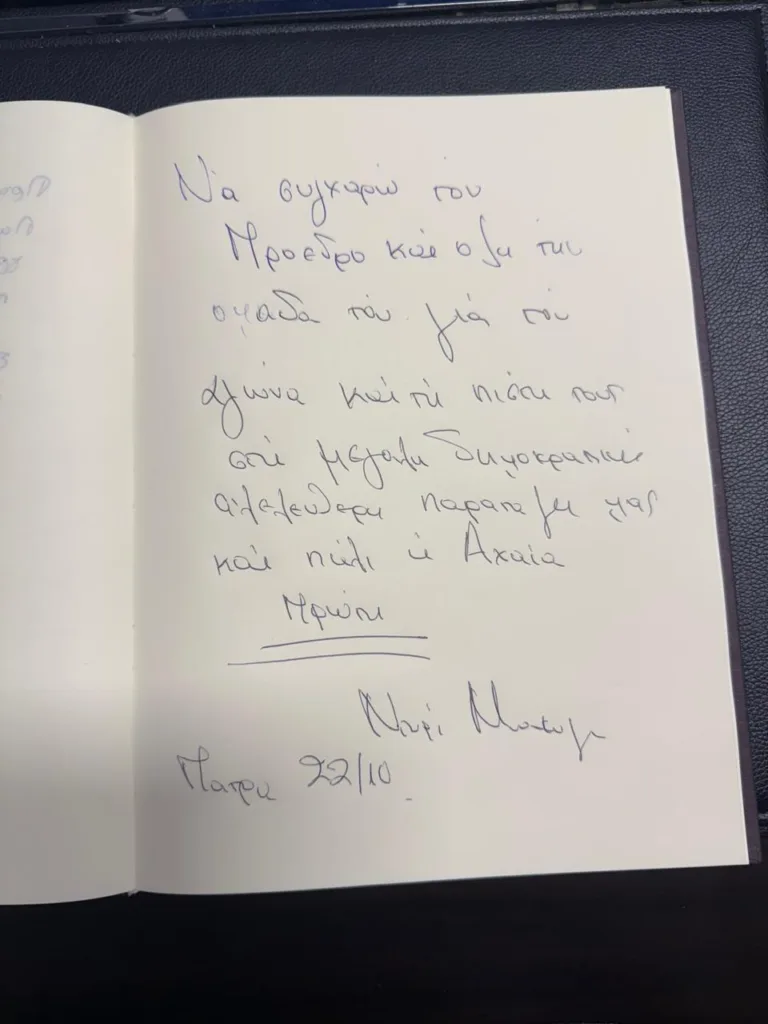 Να συγχαρώ τον
Προεδρο και ολη την
ομαδα του για τον
αγώνα και τη πιστη τους
στη μεγαλη δημοκρατική
φιλελευθερη παραταξη μας
και πάλι η Αχαϊα
Πρώτη
Πατρα 22/10